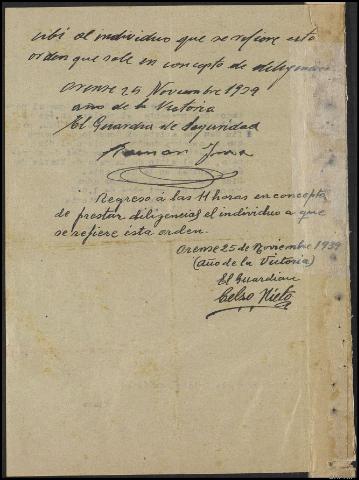 cibí al individuo que se refiere esta
orden que sale en concepto de diligencias
Orense 25 Noviembre 1939
año de la Victoria
El Guardia de Seguridad
Regreso á las 11 horas en concepto
de prestar diligencias el individuo a que
se refiere ésta orden.
Orense 25 de Noviembre 1939
(Año de la Victoria)
El Guardian
Celso Nieto